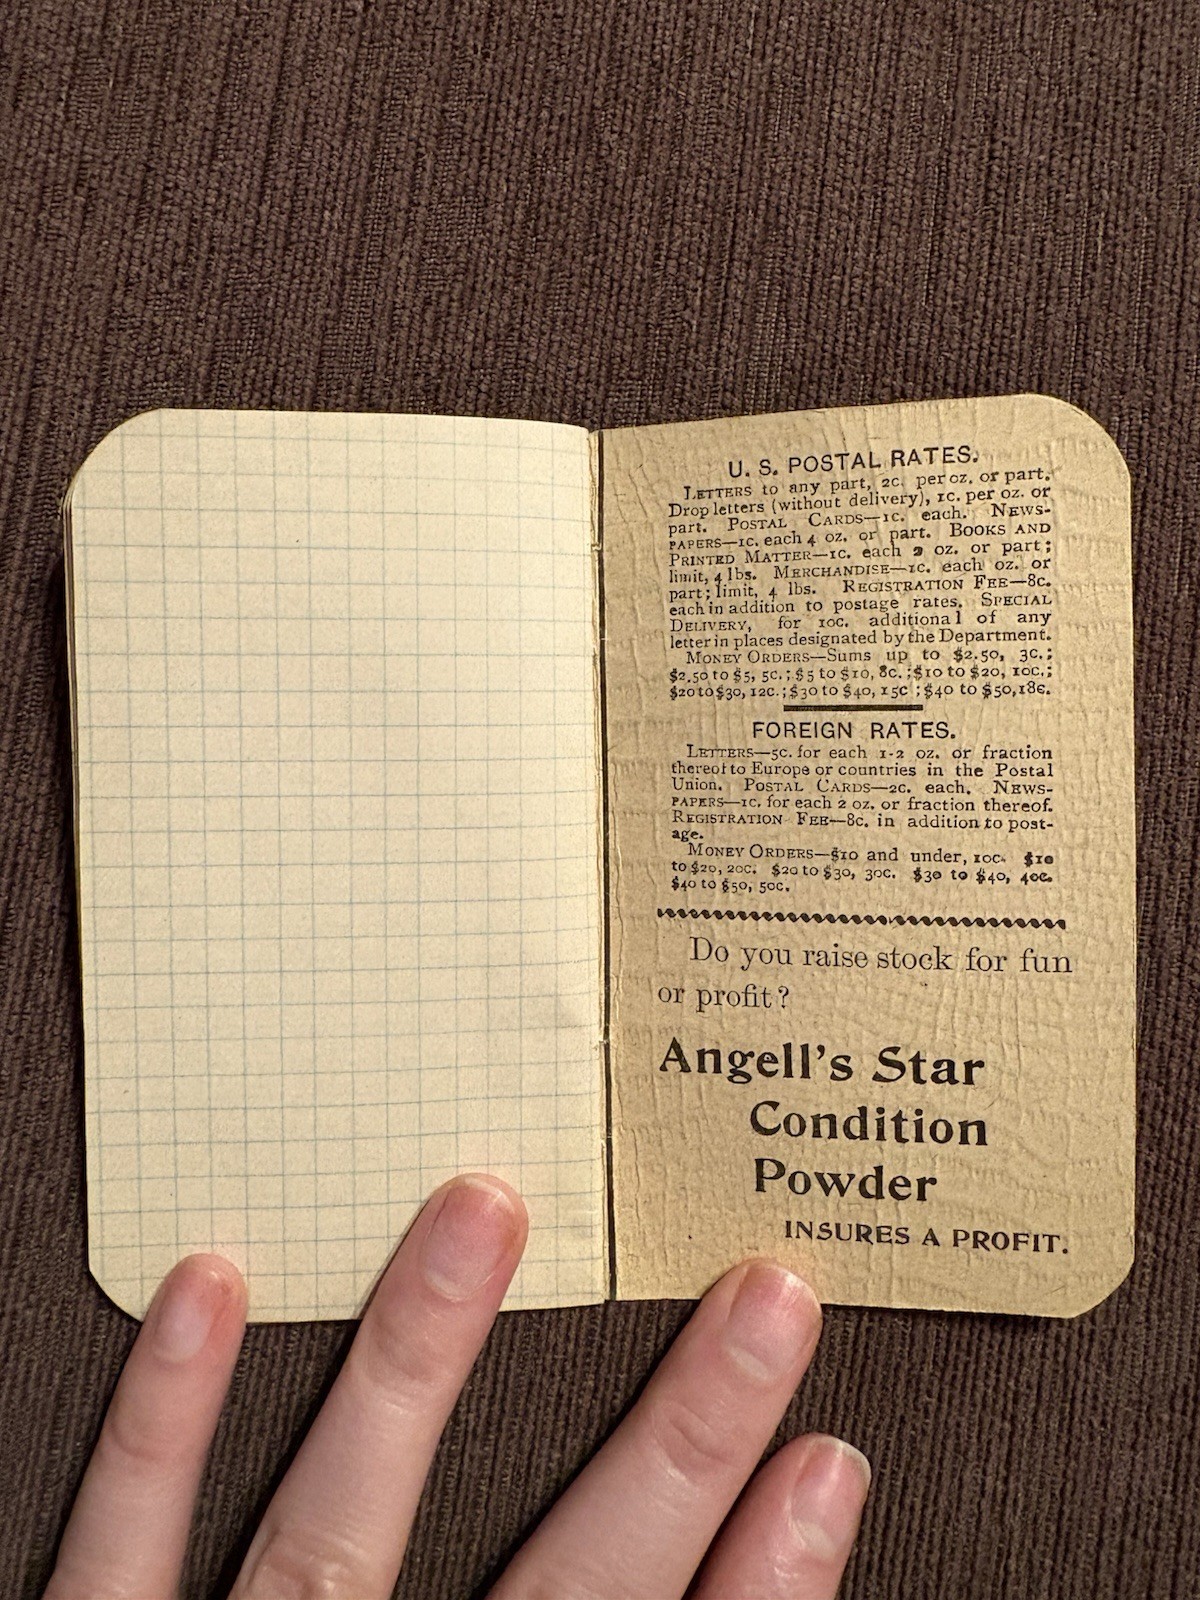 U. S. POSTAL RATES.
LETTERS to any part, 2c. per oz. or part.
Drop letters (without delivery), 1c. per oz. or
part. POSTAL CARDS—1c. each. NEWS-
PAPERS—1c. each 4 oz. or part. BOOKS AND
PRINTED MATTER—1c. each 2 oz. or part;
limit, 4 lbs. MERCHANDISE—1c. each oz. or
part; limit, 4 lbs. REGISTRATION FEE—8c.
each in addition to postage rates. SPECIAL
DELIVERY, for 10c. additional of any
letter in places designated by the Department.
MONEY ORDERS—Sums up to $2.50, 3c.;
$2.50 to $5, 5c.; $5 to $10, 8c.; $10 to $20, 10c.;
$20 to $30, 12c.; $30 to $40, 15c ; $40 to $50, 18c.
FOREIGN RATES.
LETTERS—5c. for each 1-2 oz. or fraction
thereof to Europe or countries in the Postal
Union. POSTAL CARDS—2c. each. NEWS-
PAPERS—1c. for each 2 oz. or fraction thereof.
REGISTRATION FEE—8c. in addition to post-
age.
MONEY ORDERS—$10 and under, 10c. $10
to $20, 20c. $20 to $30, 30c. $30 to $40, 40c.
$40 to $50, 50c.
Do you raise stock for fun
or profit?
Angell's Star
Condition
Powder
INSURES A PROFIT.